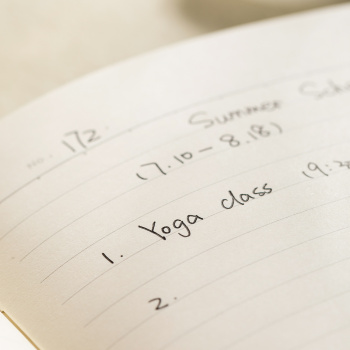 No. 172
Summer
(7.10 - 8.18)
1. Yoga class
2.